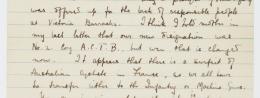 was offered up for the lack of responsible people
at Victoria Barracks. I think I told mother in
my last letter that our new designation was
No. 2 Coy A.C.T.B. but even that is changed
now. It appears that there is a surfeit of
Australian Cyclists in France, so we all have
to transfer either to the Infantry or Machine Guns.